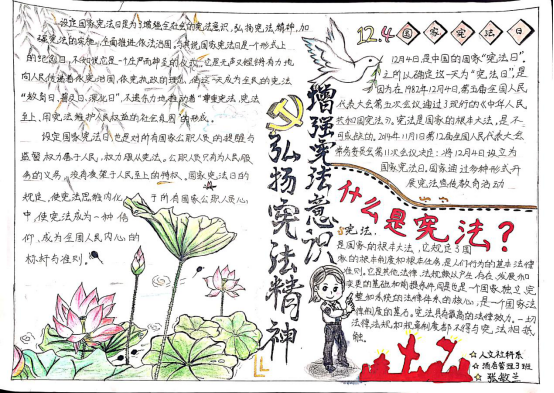 设定国家宪法日是为了增强全社会的宪法意识,弘扬宪法精神,加
强宪法的实施,全面推进依法治国。与其说国家宪法日是个形式上
的纪念日,不如说它是一个庄严而神圣的仪式,它是无声又铿锵有力地
向人民传递着依宪治国、依宪执政的理念,使这一天成为全民的宪法
“教育日、普及日、深化日”,
至上、用宪法维护人民权益的社会氛围”的形成。
设定国家宪法日也是对所有国家公职人员的提醒与
监督,权力属于人民,权力服从宪法。公职人员只有为人民服
务的义务,没有凌驾于人民至上的特权。国家宪法日的
规定,使宪法思维内化于所有国家公职人员心
中,使宪法成为一种信
仰,成为全国人民内心的
标杆与准则。
弘扬宪法精神
增强宪法意识
12.4国家宪法日
12月4日,是中国的国家“宪法日”。
之所以确定这一天为“宪法日”,是
因为在1982年12月4日,第五届全国人民
代表大会第五次会议通过了现行的《中华人民
共和国宪法》。宪法是国家的根本大法,是不
可或缺的。2014年11月1日第12届全国人民代表大会
常务委员会第11次会议决定:将12月4日设立为
国家宪法日,国家通过多种形式开
展宪法宣传教育活动
什么是宪法?
宪法:
是国家的根本大法,它规定了国
家的根本制度和根本任务,是人们行为的基本法律
准则。它是其他法律、法规赖以产生、存在、发展和
变更的基础和前提条件,同是也是一个国家独立、完
整和系统的法律体系的核心,是一个国家法
律制度的基石。宪法具有最高的法律效力。一切
法律、法规和规章制度都不得与宪法相抵
触。
☆人文社科系
☆酒店管理3班
☆张敏兰